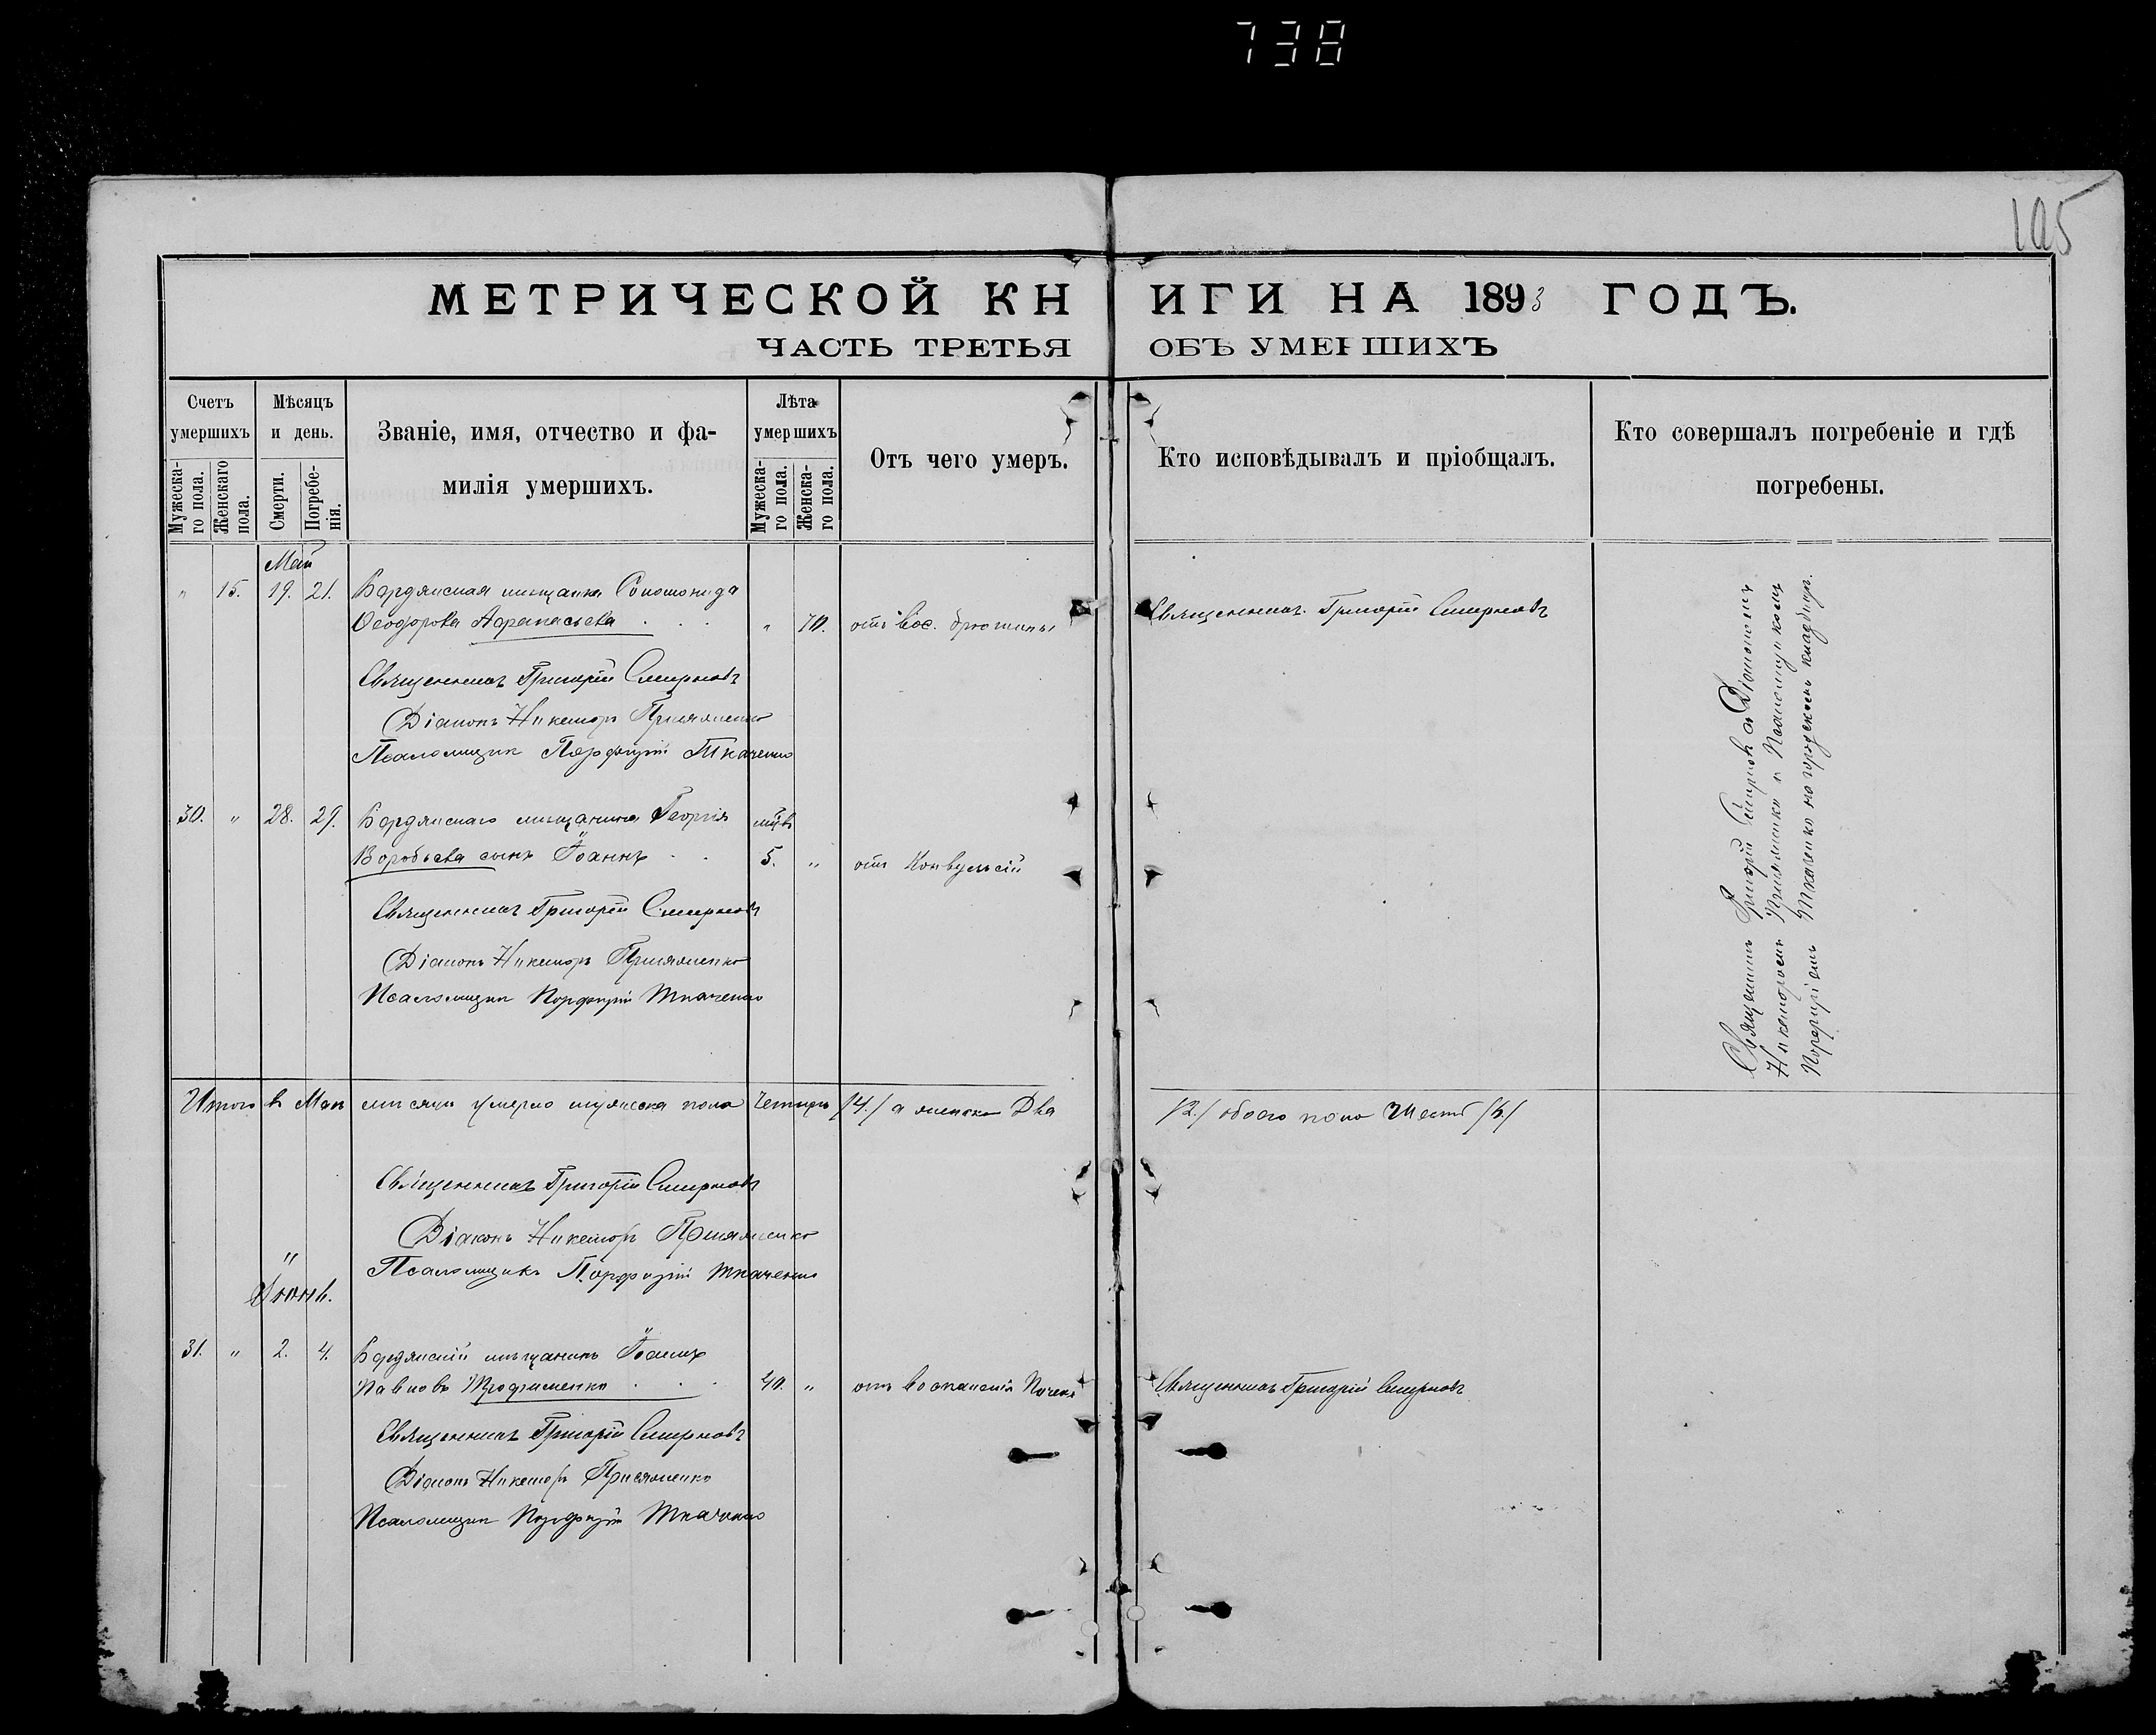 738
105
МЕТРИЧЕСКОЙ КНИГИ НА 1893 ГОДЪ.
ЧАСТЬ ТРЕТЬЯ ОБЪ УМЕРШИХЪ
Счетъ умершихъ
Мужеска-го пола.
Женскаго пола.
Мѣсяцъ и день.
Смерти.
Погребе-нія.
Званіе, имя, отчество и фа-
милія умершихъ.
Лѣта умершихъ
Мужеска-го пола.
Женска-го пола.
Отъ чего умеръ.
Кто исповѣдывалъ и пріобщалъ.
Кто совершалъ погребеніе и гдѣ
погребены.
Май
" 15. 19. 21. Бердянская мѣщанка Соломонида
Ѳеодорова Афанасьева . . . " 70. отъ вос. брюшины Священникъ Григорій Смирновъ
Священникъ Григорій Смирновъ
Діаконъ Никаноръ Присяженко
Псаломщикъ Порфирій Ткаченко
30. " 28. 29. Бердянскаго мѣщанина Георгія
Воробьева сынъ Іоаннъ . . 5. " отъ Конвульсій
Священникъ Григорій Смирновъ
Діаконъ Никаноръ Присяженко
Псаломщикъ Порфирій Ткаченко
Священникъ Григорій Смирновъ съ Діакономъ
Никаноромъ Присяженко и Псаломщикомъ
Порфиріемъ Ткаченко на городскомъ кладбищѣ.
Итого въ Маѣ мѣсяцѣ умерло мужеска пола Четыре /4./ а женска Два /2./ обоего пола Шесть /6/
Священникъ Григорій Смирновъ
Діаконъ Никаноръ Присяженко
Псаломщикъ Порфирій Ткаченко
Іюнь.
31. " 2. 4. Бердянскій мѣщанинъ Іоаннъ
Павловъ Трофименко . . . 40. " отъ воспаленія Почекъ Священникъ Григорій Смирновъ
Священникъ Григорій Смирновъ
Діаконъ Никаноръ Присяженко
Псаломщикъ Порфирій Ткаченко